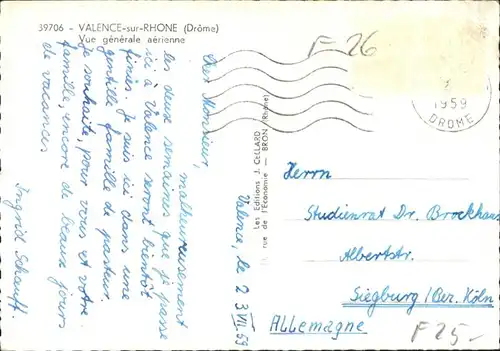 39706 - VALENCE-sur-RHONE (Drôme)
Vue générale aérienne
F-26
1959
DROME
Les Editions J. CELLARD
rue de l'Economie — BRON (Rhône)
Valence, le 23 VII 59
Cher Monsieur,
malheureusement
les deux semaines que je passe
ici à Valence seront bientôt
finies. Je suis ici dans une
gentille famille de pasteur.
Je souhaite, pour vous et votre
famille, encore de beaux jours
de vacances.
Ingrid Schauff.
Herrn
Studienrat Dr. Brockhaus
Albertstr.
Siegburg / Bez. Köln
Allemagne
F25.-